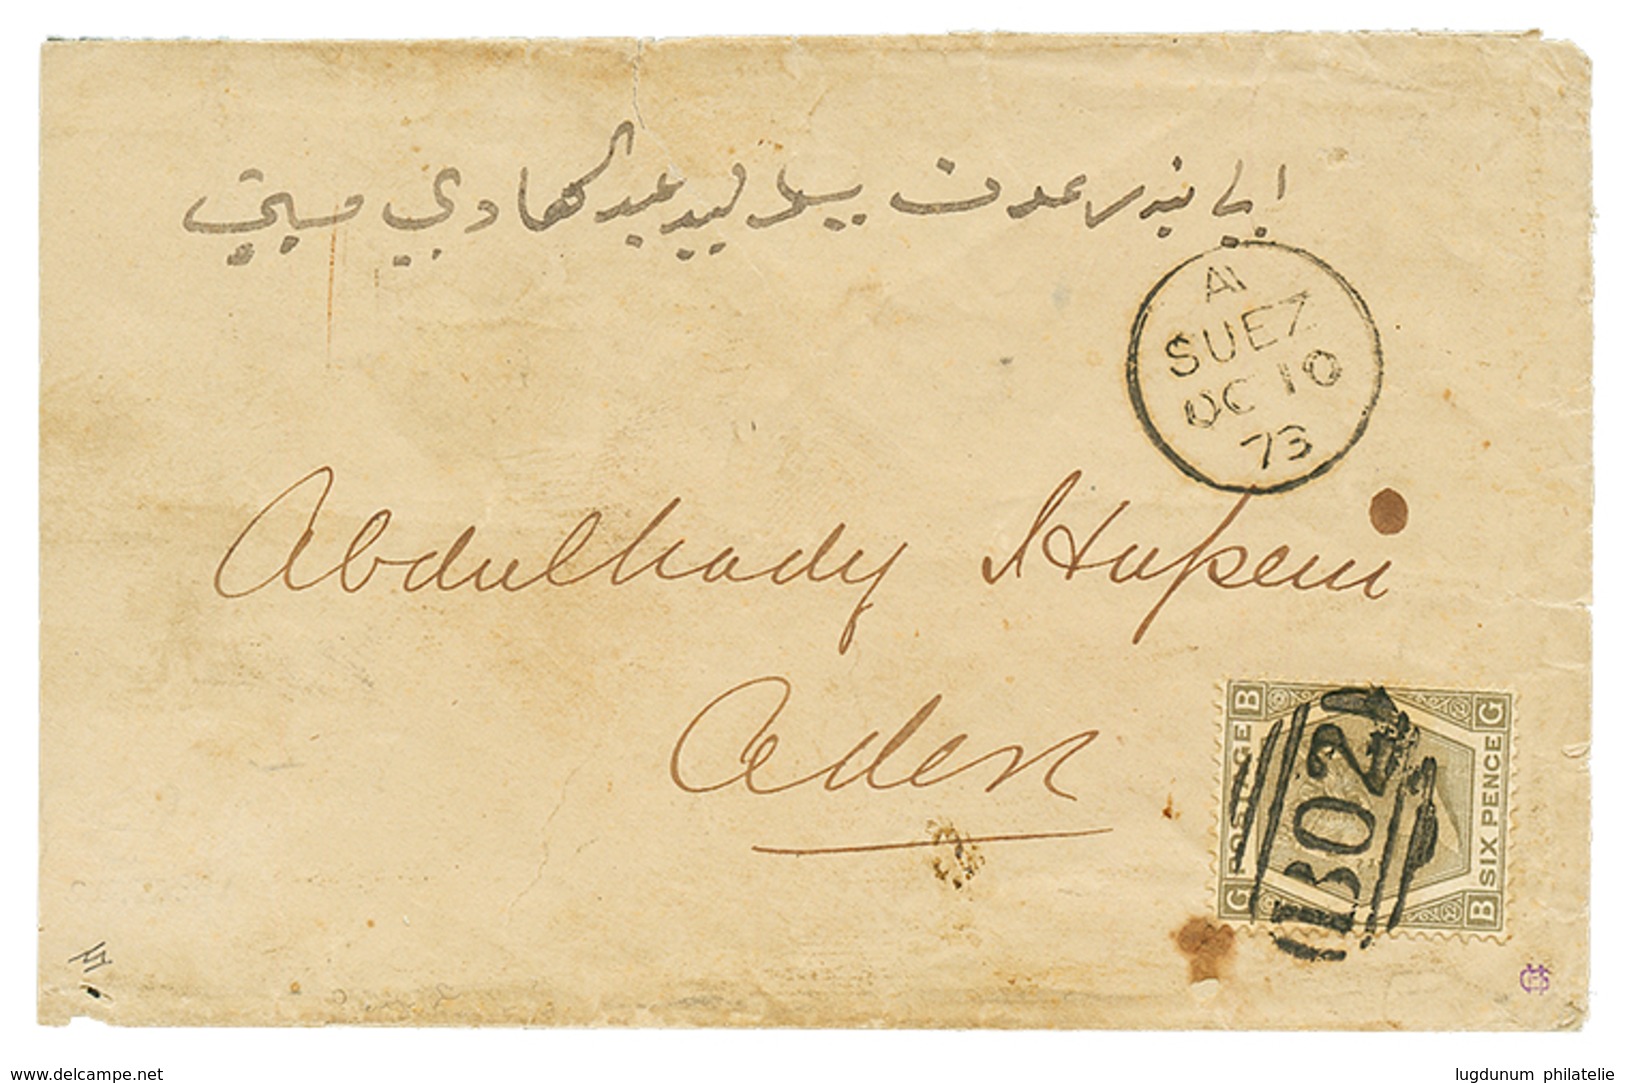 الي بندر عدن بيد لبيد عبد الهادي
A
SUEZ
OC 10
73
Abdulhady Hussein
Aden
B
G
POSTAGE
SIX PENCE
G
B
B02
www.delcampe.net
lugdunum philatelie